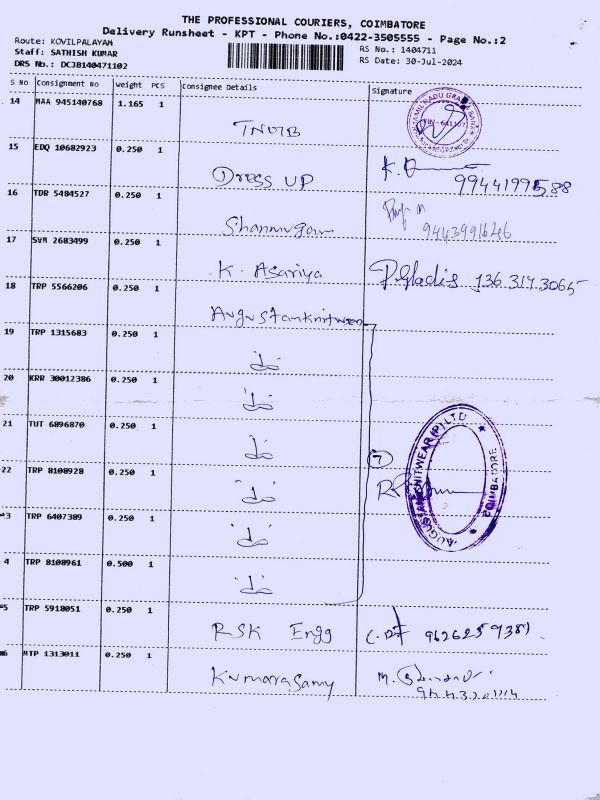 THE PROFESSIONAL COURIERS, COIMBATORE
Delivery Runsheet - KPT - Phone No.:0422-3505555 - Page No.:2
Route: KOVILPALAYAM
Staff: SATHISH KUMAR
DRS No.: DCJB140471102
RS No.: 1404711
RS Date: 30-Jul-2024
S NO Consignment No Weight PCS Consignee Details Signature
14 MAA 945140768 1.165 1
TNGB
15 EDQ 10682923 0.250 1
Dress UP
16 TDR 5484527 0.250 1
Shanmugam
17 SVM 2683499 0.250 1
K. Asariya P.Gladis 136.317.3065
18 TRP 5566206 0.250 1
Augustanknitwear
19 TRP 1315683 0.250 1
20 KRR 30012386 0.250 1
21 TUT 6896870 0.250 1
22 TRP 8108928 0.250 1
7
3 TRP 6407389 0.250 1
4 TRP 8108961 0.500 1
5 TRP 5918051 0.250 1
RSK Engg
6 MTP 1313011 0.250 1
Kumarasamy
AUGUSTAN KNITWEAR (P) LTD
COIMBATORE